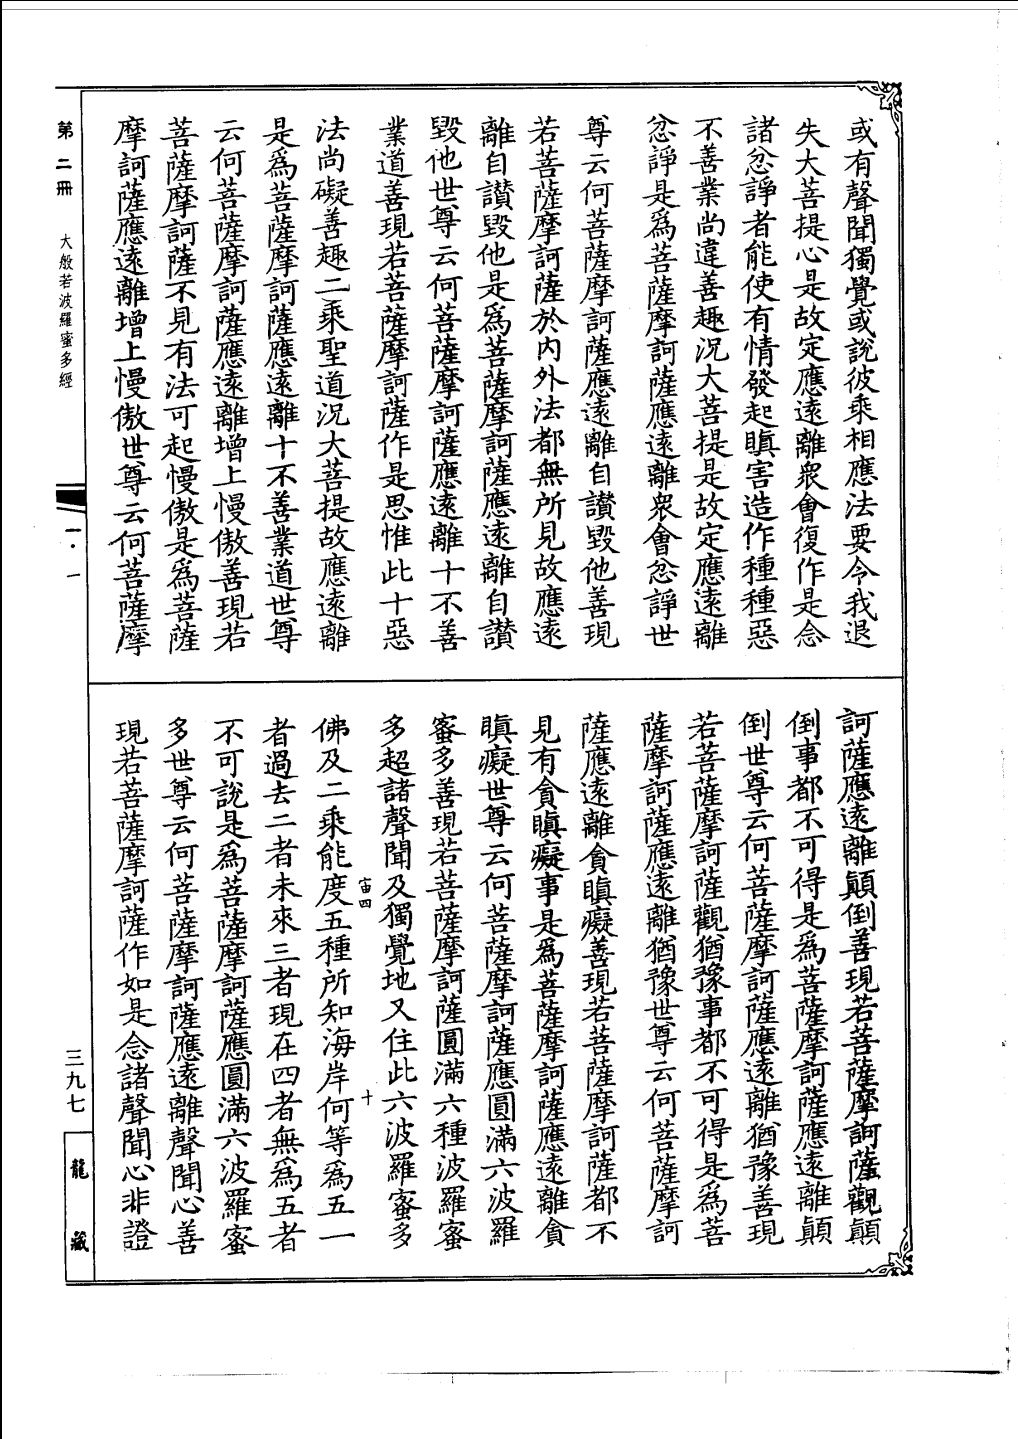 或有聲聞獨覺或說彼乘相應法要令我退
失大菩提心是故定應遠離衆會復作是念
諸忿諍者能使有情發起瞋害造作種種惡
不善業尚違善趣況大菩提是故定應遠離
忿諍是爲菩薩摩訶薩應遠離衆會忿諍世
尊云何菩薩摩訶薩應遠離自讚毀他善現
若菩薩摩訶薩於內外法都無所見故應遠
離自讚毀他是爲菩薩摩訶薩應遠離自讚
毀他世尊云何菩薩摩訶薩應遠離十不善
業道善現若菩薩摩訶薩作是思惟此十惡
法尚礙善趣二乘聖道況大菩提故應遠離
是爲菩薩摩訶薩應遠離十不善業道世尊
云何菩薩摩訶薩應遠離增上慢傲善現若
菩薩摩訶薩不見有法可起慢傲是爲菩薩
摩訶薩應遠離增上慢傲世尊云何菩薩摩
訶薩應遠離顛倒善現若菩薩摩訶薩觀顛
倒事都不可得是爲菩薩摩訶薩應遠離顛
倒世尊云何菩薩摩訶薩應遠離猶豫善現
若菩薩摩訶薩觀猶豫事都不可得是爲菩
薩摩訶薩應遠離猶豫世尊云何菩薩摩訶
薩應遠離貪瞋癡善現若菩薩摩訶薩都不
見有貪瞋癡事是爲菩薩摩訶薩應遠離貪
瞋癡世尊云何菩薩摩訶薩應圓滿六波羅
蜜多善現若菩薩摩訶薩圓滿六種波羅蜜
多超諸聲聞及獨覺地又住此六波羅蜜多
宙四
十
佛及二乘能度五種所知海岸何等爲五一
者過去二者未來三者現在四者無爲五者
不可說是爲菩薩摩訶薩應圓滿六波羅蜜
多世尊云何菩薩摩訶薩應遠離聲聞心善
現若菩薩摩訶薩作如是念諸聲聞心非證
第二冊
大般若波羅蜜多經
一·一
三九七
龍藏